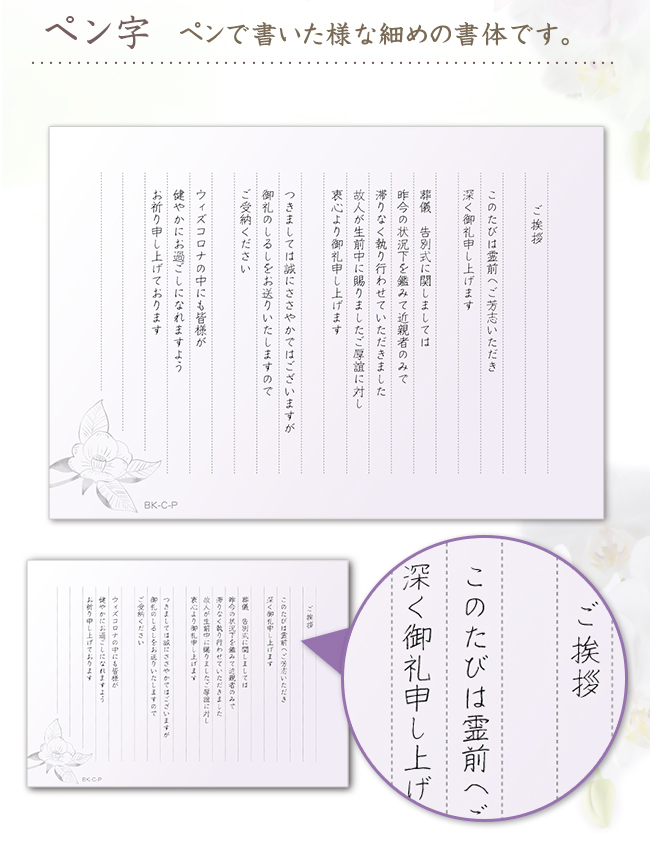 ペン字 ペンで書いた様な細めの書体です。
ご挨拶
このたびは霊前へご芳志いただき
深く御礼申し上げます
葬儀 告別式に関しましては
昨今の状況下を鑑みて近親者のみで
滞りなく執り行わせていただきました
故人が生前中に賜りましたご厚誼に対し
衷心より御礼申し上げます
つきましては誠にささやかではございますが
御礼のしるしをお送りいたしますので
ご受納ください
ウィズコロナの中にも皆様が
健やかにお過ごしになれますよう
お祈り申し上げております
BK-C-P
ご挨拶
このたびは霊前へご芳志いただき
深く御礼申し上げます
葬儀 告別式に関しましては
昨今の状況下を鑑みて近親者のみで
滞りなく執り行わせていただきました
故人が生前中に賜りましたご厚誼に対し
衷心より御礼申し上げます
つきましては誠にささやかではございますが
御礼のしるしをお送りいたしますので
ご受納ください
ウィズコロナの中にも皆様が
健やかにお過ごしになれますよう
お祈り申し上げております
BK-C-P
ご挨拶
このたびは霊前へご
深く御礼申し上げ